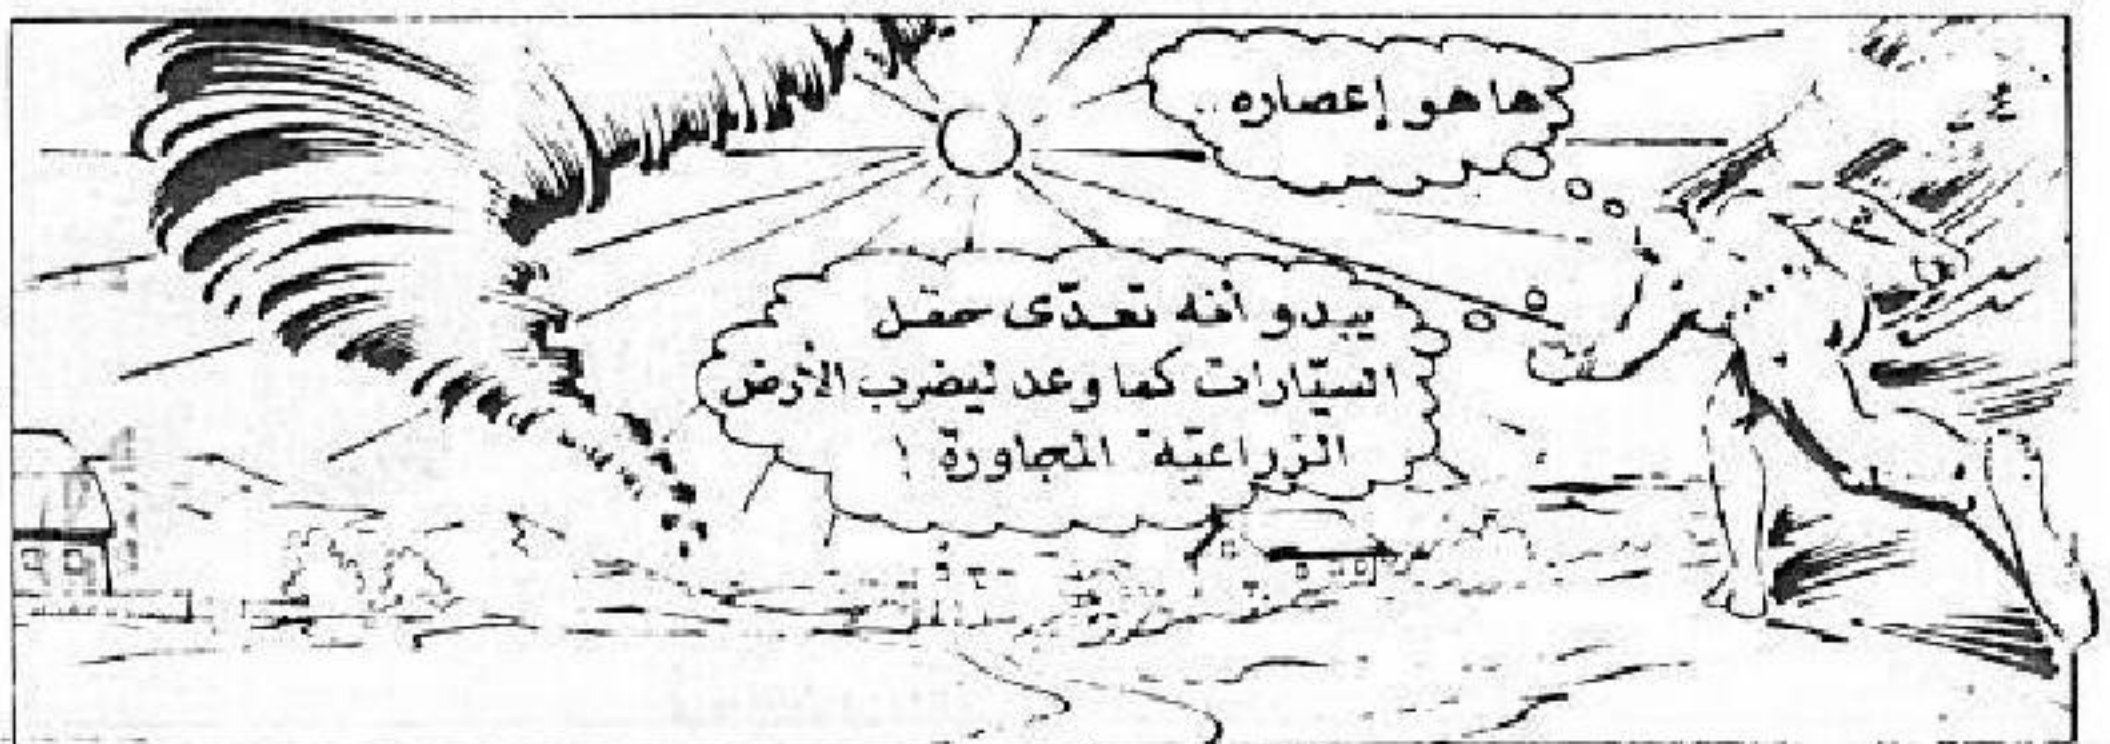 ها هو إعصاره..
يبدو أنه تعدّى حقل
السيّارات كما وعد ليضرب الأرض
الزراعيّة المجاورة !